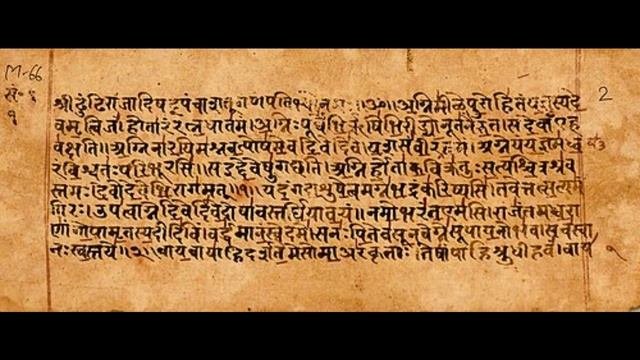 M-66
2
श्रीढुंढिराजादिषट्पंचाशत्गणपतिभ्यो नमः ॥ॐ॥ अग्निमीळे पुरोहितं यज्ञस्य दे
वमृत्विजं। होतारं रत्नधातमं। अग्निः पूर्वेभिर्ऋषिभिरीड्यो नूतनैरुत। स देवाँ एह
वक्षति॥ अग्निना रयिमश्नवत्पोषमेव दिवेदिवे। यशसं वीरवत्तमं। अग्ने यं यज्ञमध्व
रं विश्वतः परिभूरसि। स इद्देवेषु गच्छति। अग्निर्होता कविक्रतुः सत्यश्चित्रश्रव
स्तमः। देवो देवेभिरागमत्॥१॥ यदंग दाशुषे त्वमग्ने भद्रं करिष्यसि। तवेत्तत्सत्यमं
गिरः। उप त्वाग्ने दिवेदिवे दोषावस्तर्धिया वयं। नमो भरंत एमसि। राजंतमध्वरा
णां गोपामृतस्य दीदिविं। वर्धमानं स्वे दमे। स नः पितेव सूनवेग्ने सूपायनो भव। सचस्वा
नः स्वस्तये॥२॥ वायवा याहि दर्शतेमे सोमा अरंकृताः। तेषां पाहि श्रुधी हवं। वाय
१